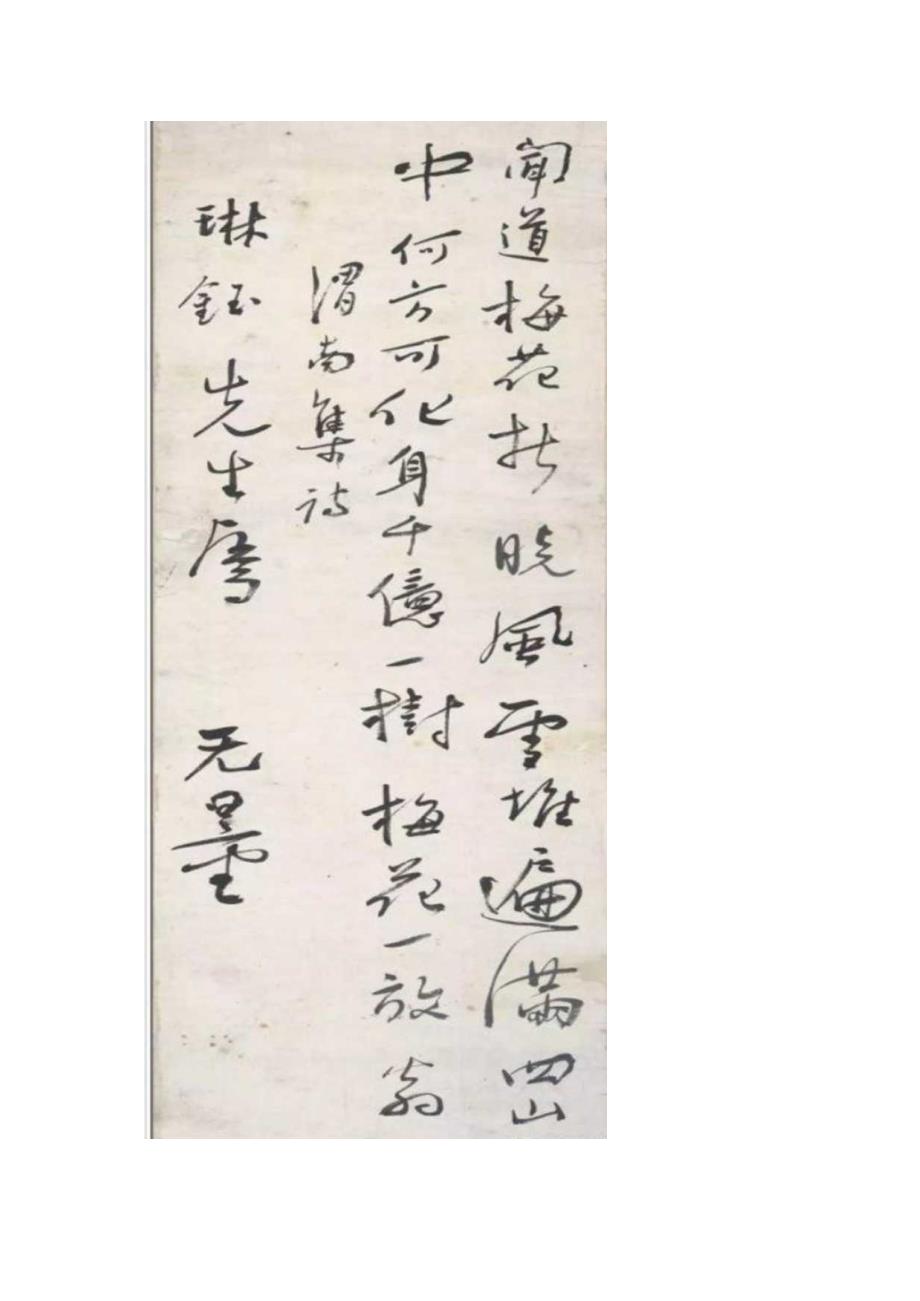 闻道梅花拆晓風雪堆遍滿四山
中何方可化身千億一樹梅花一放翁
渭南集诗
琳鈺先生属
无量